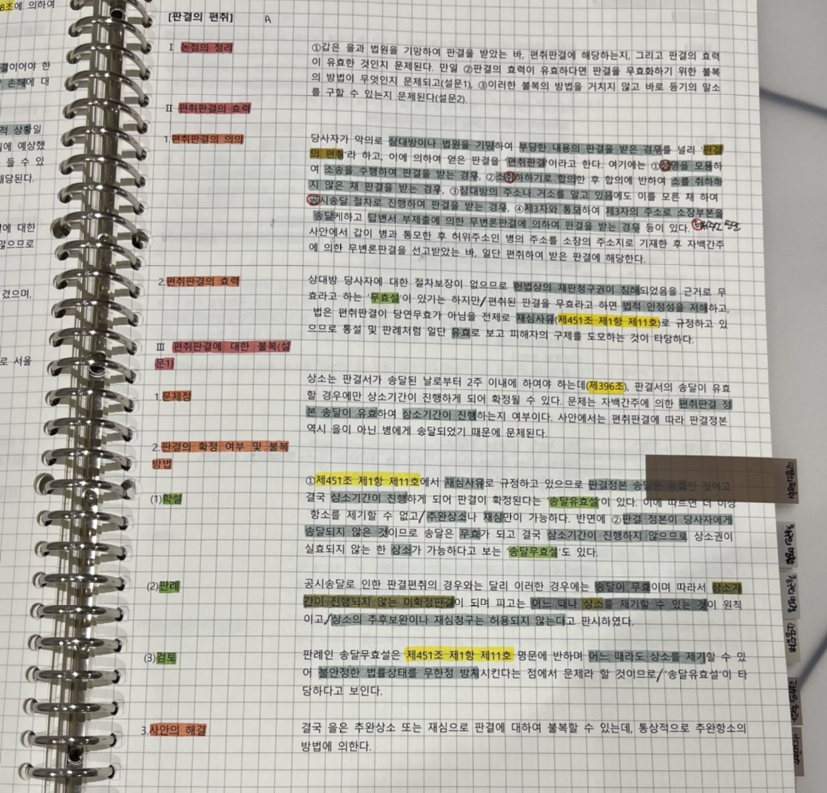 8조에 의하여
[판결의 편취] A
Ⅰ 논점의 정리
①갑은 을과 법원을 기망하여 판결을 받았는 바, 편취판결에 해당하는지, 그리고 판결의 효력
이 유효한 것인지 문제된다. 만일 ②판결의 효력이 유효하다면 판결을 무효화하기 위한 불복
의 방법이 무엇인지 문제되고(설문1), ③이러한 불복의 방법을 거치지 않고 바로 등기의 말소
를 구할 수 있는지 문제된다(설문2).
Ⅱ 편취판결의 효력
1.편취판결의 의의
당사자가 악의로 상대방이나 법원을 기망하여 부당한 내용의 판결을 받은 경우를 널리 '판결
의 편취'라 하고, 이에 의하여 얻은 판결을 '편취판결'이라고 한다. 여기에는 ①성명을 모용하
여 소송을 수행하여 판결을 받는 경우, ②소취하하기로 합의한 후 합의에 반하여 소를 취하하
지 않은 채 판결을 받는 경우, ③상대방의 주소나 거소를 알고 있음에도 이를 모른 채 하여
공시송달 절차로 진행하여 판결을 받는 경우, ④제3자와 통모하여 제3자의 주소로 소장부본을
송달케하고 답변서 부제출에 의한 무변론판결에 의하여 판결을 받는 경우 등이 있다.
사안에서 갑이 병과 통모한 후 허위주소인 병의 주소를 소장의 주소지로 기재한 후 자백간주
에 의한 무변론판결을 선고받았는 바, 일단 편취하여 받은 판결에 해당한다.
2.편취판결의 효력
상대방 당사자에 대한 절차보장이 없으므로 헌법상의 재판청구권이 침해되었음을 근거로 무
효라고 하는 '무효설'이 있기는 하지만/편취된 판결을 무효라고 하면 법적 안정성을 저해하고,
법은 편취판결이 당연무효가 아님을 전제로 재심사유(제451조 제1항 제11호)로 규정하고 있
으므로 통설 및 판례처럼 일단 유효로 보고 피해자의 구제를 도모하는 것이 타당하다.
Ⅲ 편취판결에 대한 불복(설
문1)
1.문제점
상소는 판결서가 송달된 날로부터 2주 이내에 하여야 하는데(제396조), 판결서의 송달이 유효
할 경우에만 상소기간이 진행하게 되어 확정될 수 있다. 문제는 자백간주에 의한 편취판결 정
본 송달이 유효하여 상소기간이 진행하는지 여부이다. 사안에서는 편취판결에 따라 판결정본
역시 을이 아닌 병에게 송달되었기 때문에 문제된다.
2.판결의 확정 여부 및 불복
방법
(1)학설
①제451조 제1항 제11호에서 재심사유로 규정하고 있으므로 판결정본 송달은 유효한 것이고
결국 상소기간이 진행하게 되어 판결이 확정된다는 '송달유효설'이 있다. 이에 따르면 더 이상
항소를 제기할 수 없고/추완상소나 재심만이 가능하다. 반면에 ②판결 정본이 당사자에게
송달되지 않은 것이므로 송달은 무효가 되고 결국 상소기간이 진행하지 않으므로 상소권이
실효되지 않는 한 상소가 가능하다고 보는 '송달무효설'도 있다.
(2)판례
공시송달로 인한 판결편취의 경우와는 달리 이러한 경우에는 송달이 무효이며 따라서 상소기
간이 진행되지 않는 미확정판결이 되며 피고는 어느 때나 상소를 제기할 수 있는 것이 원칙
이고,/상소의 추후보완이나 재심청구는 허용되지 않는다고 판시하였다.
(3)검토
판례인 송달무효설은 제451조 제1항 제11호 명문에 반하며 어느 때라도 상소를 제기할 수 있
어 불안정한 법률상태를 무한정 방치시킨다는 점에서 문제라 할 것이므로/'송달유효설'이 타
당하다고 보인다.
3.사안의 해결
결국 을은 추완상소 또는 재심으로 판결에 대하여 불복할 수 있는데, 통상적으로 추완항소의
방법에 의한다.